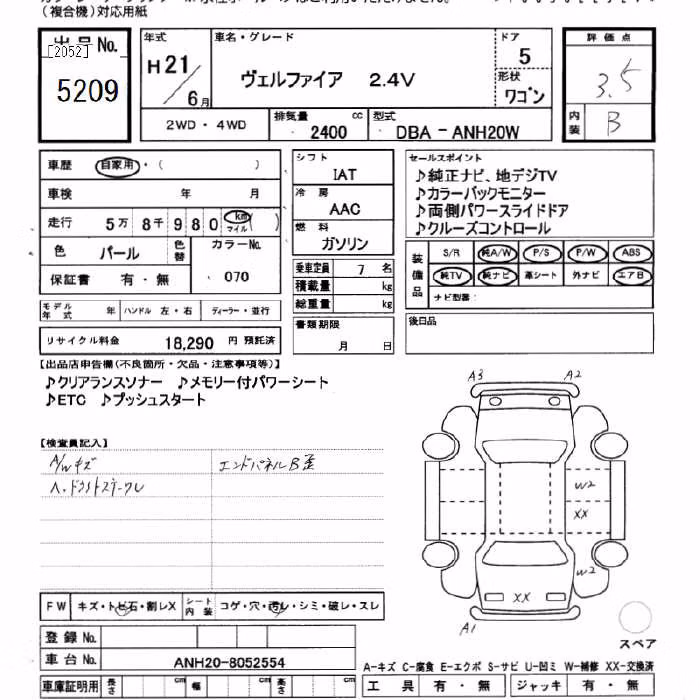 （複合機）対応用紙
出品No.
[2052]
5209
年式
H21
6月
車名・グレード
ヴェルファイア 2.4V
ドア
5
形状
ワゴン
評価点
3.5
内装
B
2WD・4WD
排気量
2400 cc
型式
DBA - ANH20W
車歴 自家用・（ ）
車検 年 月
走行 5万 8千 9 8 0 km マイル ( )
色 パール
色替
カラーNo.
070
保証書 有・無
モデル年式 年
ハンドル 左・右
ディーラー・並行
リサイクル料金 18,290 円 預託済
シフト
IAT
冷房
AAC
燃料
ガソリン
乗車定員 7 名
積載量 kg
総重量 kg
書類期限
月 日
セールスポイント
♪純正ナビ、地デジTV
♪カラーバックモニター
♪両側パワースライドドア
♪クルーズコントロール
装備品
S/R 純A/W P/S P/W ABS
純TV 純ナビ 革シート 外ナビ エアB
ナビ型番：
後日品
【出品店申告欄(不良箇所・欠品・注意事項等)】
♪クリアランスソナー ♪メモリー付パワーシート
♪ETC ♪プッシュスタート
【検査員記入】
A/Wキズ
エンドパネルB歪
A3
A2
W2
XX
W2
XX
A1
スペア
FW キズ・トビ石・割レX
シート内装 コゲ・穴・汚レ・シミ・破レ・スレ
登録No.
車台No. ANH20-8052554
車庫証明用 長さ cm 幅 cm 高さ cm
A-キズ C-腐食 E-エクボ S-サビ U-凹ミ W-補修 XX-交換済
工具 有・無 ジャッキ 有・無